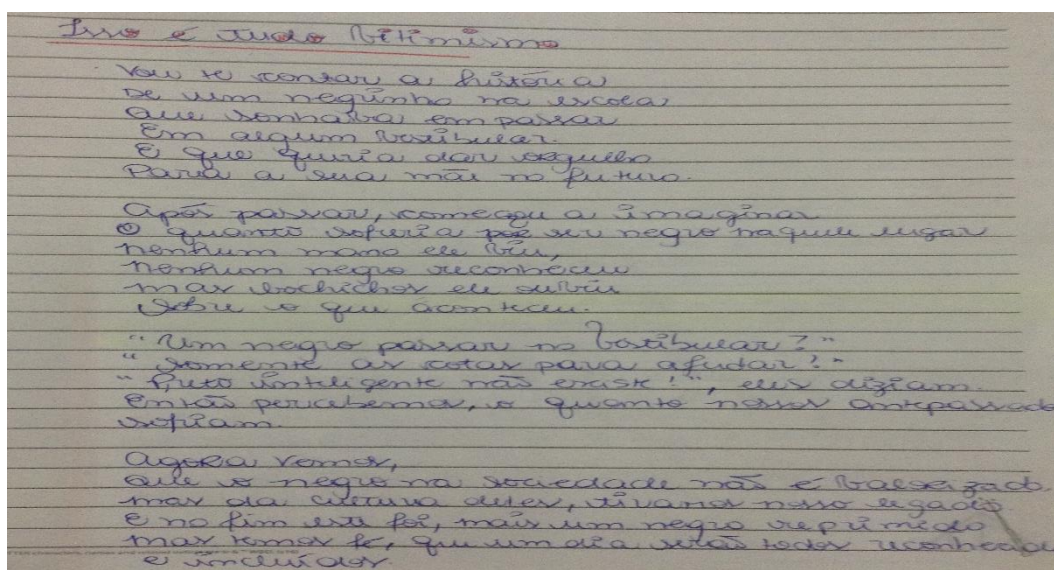 Isso é tudo Vitimismo
Vou te contar a história
De um neguinho na escola
Que sonhava em passar
Em algum Vestibular.
E que queria dar orgulho
Para a sua mãe no futuro.
Após passar, começou a imaginar
O quanto sofreria por ser negro naquele lugar
nenhum mano ele viu,
nenhum negro reconheceu
mas cochichos ele ouviu
Sobre o que aconteceu.
"Um negro passar no Vestibular?"
"Somente as cotas para ajudar!"
"Preto inteligente não existe!", eles diziam.
Então percebemos, o quanto nossos antepassado
sofriam.
Agora vemos,
Que o negro na sociedade não é valorizado
mas da cultura deles, tivamos nosso legado
E no fim este foi, mais um negro reprimido
mas temos fé, que um dia serão todos reconhecido
e incluídos.